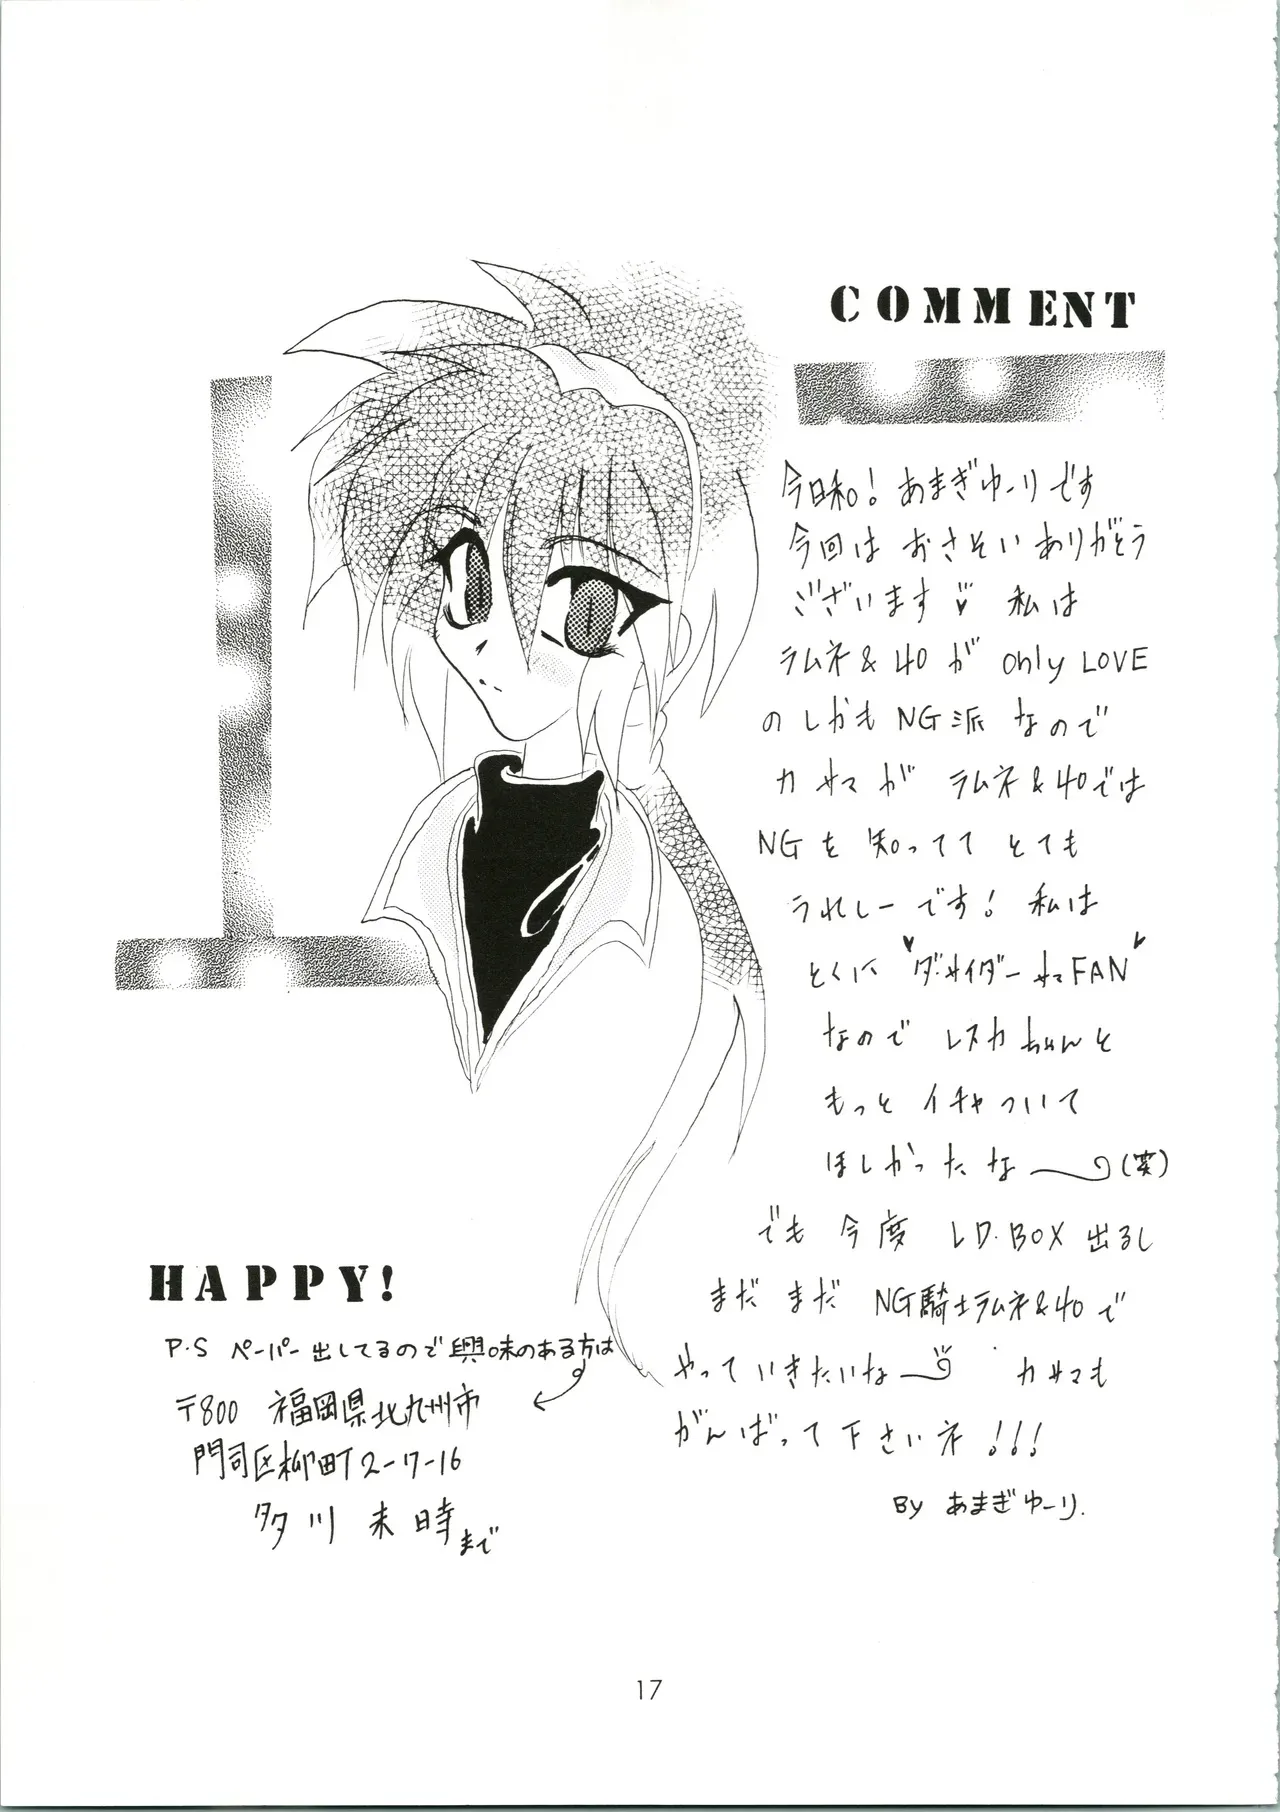 COMMENT
今日和。! あまぎゆーりです
今回は おさそい ありがとう
ございます 私は
ラムネ&40が only LOVE
の しかも NG派 なので
カサマが ラムネ&40では
NGを 知ってて とても
うれしーです! 私は
とくに "ダ・サイダーサマFAN"
なので レスカちゅんと
もっと イチャついて
ほしかったな〜(笑)
でも 今度 LD.BOX 出るし
まだ まだ NG騎士ラムネ&40で
やって いきたいな〜 カサマも
がんばって 下さいネ!!!
By あまぎゆーり.
HAPPY!
P.S ペーパー出してるので興味のある方は
〒800 福岡県北九州市
門司区柳町2-7-16
多川 未時まで
17